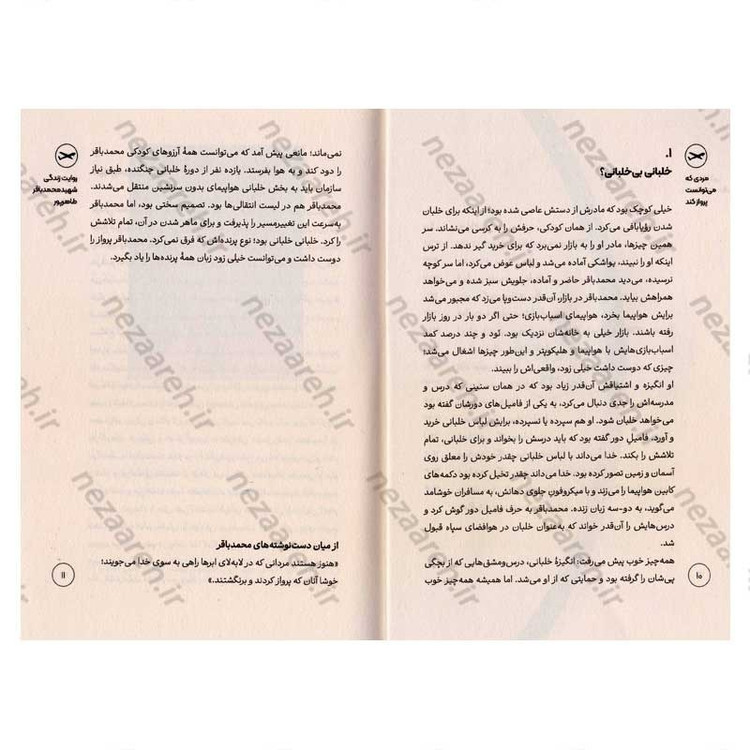 مردی که
می‌توانست
پرواز کند
۱.
خلبانی بی‌خلبانی؟
خیلی کوچک بود که مادرش از دستش عاصی شده بود؛ از اینکه برای خلبان
شدن رؤیابافی می‌کرد. از همان کودکی، حرفش را به کرسی می‌نشاند. سر
همین چیزها، مادر او را به بازار نمی‌برد که برای خرید گیر ندهد. از ترس
اینکه او را نبیند، یواشکی آماده می‌شد و لباس عوض می‌کرد، اما سر کوچه
نرسیده، می‌دید محمدباقر حاضر و آماده، جلویش سبز شده و می‌خواهد
همراهش بیاید. محمدباقر در بازار، آن‌قدر دست‌وپا می‌زد که مجبور می‌شد
برایش هواپیما بخرد، هواپیمای اسباب‌بازی؛ حتی اگر دو بار در روز بازار
رفته باشند. بازار خیلی به خانه‌شان نزدیک بود. نَود و چند درصد کمد
اسباب‌بازی‌هایش با هواپیما و هلیکوپتر و این‌طور چیزها اشغال می‌شد؛
چیزی که دوست داشت خیلی زود، واقعی‌اش را ببیند.
او انگیزه و اشتیاقش آن‌قدر زیاد بود که در همان سنینی که درس و
مدرسه‌اش را جدی دنبال می‌کرد، به یکی از فامیل‌های دورشان گفته بود
می‌خواهد خلبان شود. او هم سپرده یا نسپرده، برایش لباس خلبانی خرید
و آورد. فامیلِ دور گفته بود که باید درسش را بخواند و برای خلبانی، تمام
تلاشش را بکند. خدا می‌داند با لباس خلبانی چقدر خودش را معلق روی
آسمان و زمین تصور کرده بود. خدا می‌داند چقدر تخیل کرده بود دکمه‌های
کابین هواپیما را می‌زند و با میکروفونِ جلوی دهانش، به مسافران خوشامد
می‌گوید، به دو-سه زبان زنده. محمدباقر به حرف فامیل دور گوش کرد و
درس‌هایش را آن‌قدر خواند که به‌عنوان خلبان در هوافضای سپاه قبول
شد.
همه‌چیز خوب پیش می‌رفت: انگیزهٔ خلبانی، درس‌ومشق‌هایی که از بچگی
پی‌شان را گرفته بود و حمایتی که از او می‌شد. اما همیشه همه‌چیز خوب
۱۰
روایت زندگی
شهید محمدباقر
طاهرپور
نمی‌ماند؛ مانعی پیش آمد که می‌توانست همهٔ آرزوهای کودکی محمدباقر
را دود کند و به هوا بفرستد. یازده نفر از دورهٔ خلبانی جنگنده، طبق نیاز
سازمان باید به بخش خلبانی هواپیمای بدون سرنشین منتقل می‌شدند.
محمدباقر هم در لیست انتقالی‌ها بود. تصمیم سختی بود، اما محمدباقر
به‌سرعت این تغییرمسیر را پذیرفت و برای ماهر شدن در آن، تمام تلاشش
را کرد. خلبانی خلبانی بود؛ نوع پرنده‌اش که فرق نمی‌کرد. محمدباقر پرواز را
دوست داشت و می‌توانست خیلی زود زبان همهٔ پرنده‌ها را یاد بگیرد.
از میان دست‌نوشته‌های محمدباقر
«هنوز هستند مردانی که در لابه‌لای ابرها راهی به سوی خدا می‌جویند؛
خوشا آنان که پرواز کردند و برنگشتند.»
۱۱
nezaareh.ir